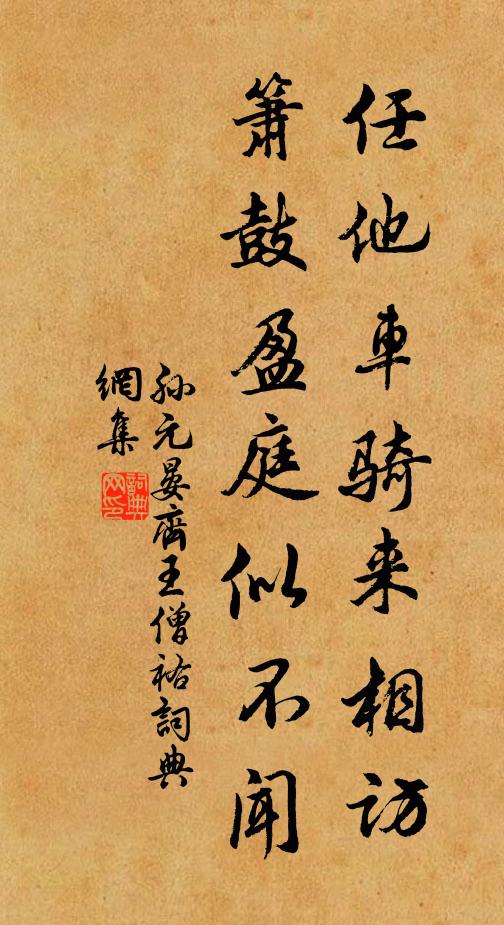 任他車騎来相訪
簫鼓盈庭似不闻
孙元晏齊王僧祐詞典
網集
詞典网印